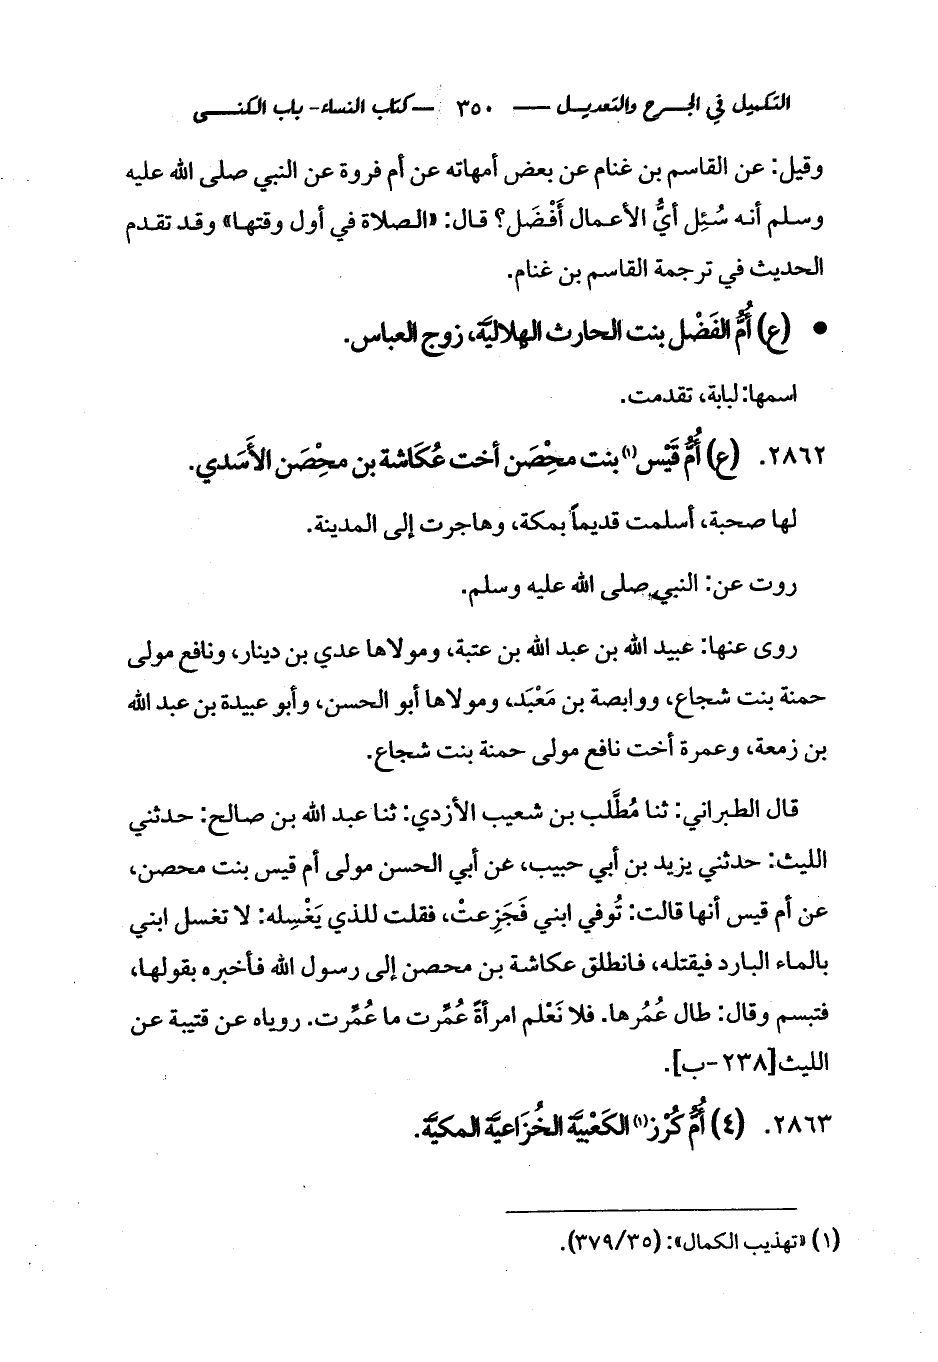 التكميل في الجرح والتعديل — ٣٥٠ — كتاب النساء - باب الكنى
وقيل: عن القاسم بن غنام عن بعض أمهاته عن أم فروة عن النبي صلى الله عليه
وسلم أنه سُئِل أيُّ الأعمال أَفْضَل؟ قال: «الصلاة في أول وقتها» وقد تقدم
الحديث في ترجمة القاسم بن غنام.
• (ع) أُمُّ الفَضْل بنت الحارث الهلاليَّة، زوج العباس.
اسمها: لبابة، تقدمت.
٢٨٦٢. (ع) أُمُّ قَيْس(١) بنت محِْصَن أخت عُكَاشة بن محِْصَن الأَسَدي.
لها صحبة، أسلمت قديماً بمكة، وهاجرت إلى المدينة.
روت عن: النبي صلى الله عليه وسلم.
روى عنها: عبيد الله بن عبد الله بن عتبة، ومولاها عدي بن دينار، ونافع مولى
حمنة بنت شجاع، ووابصة بن مَعْبَد، ومولاها أبو الحسن، وأبو عبيدة بن عبد الله
بن زمعة، وعمرة أخت نافع مولى حمنة بنت شجاع.
قال الطبراني: ثنا مُطَّلب بن شعيب الأزدي: ثنا عبد الله بن صالح: حدثني
الليث: حدثني يزيد بن أبي حبيب، عن أبي الحسن مولى أم قيس بنت محصن،
عن أم قيس أنها قالت: تُوفي ابني فَجَزِعتْ، فقلت للذي يَغْسِله: لا تغسل ابني
بالماء البارد فيقتله، فانطلق عكاشة بن محصن إلى رسول الله فأخبره بقولها،
فتبسم وقال: طال عُمُرها. فلا نَعْلم امرأةً عُمِّرت ما عُمِّرت. روياه عن قتيبة عن
الليث[٢٣٨-ب].
٢٨٦٣. (٤) أُمُّ كُرْز(١) الكَعْبِيَّة الخُزَاعيَّة المكيَّة.
(١) «تهذيب الكمال»: (٣٧٩/٣٥).